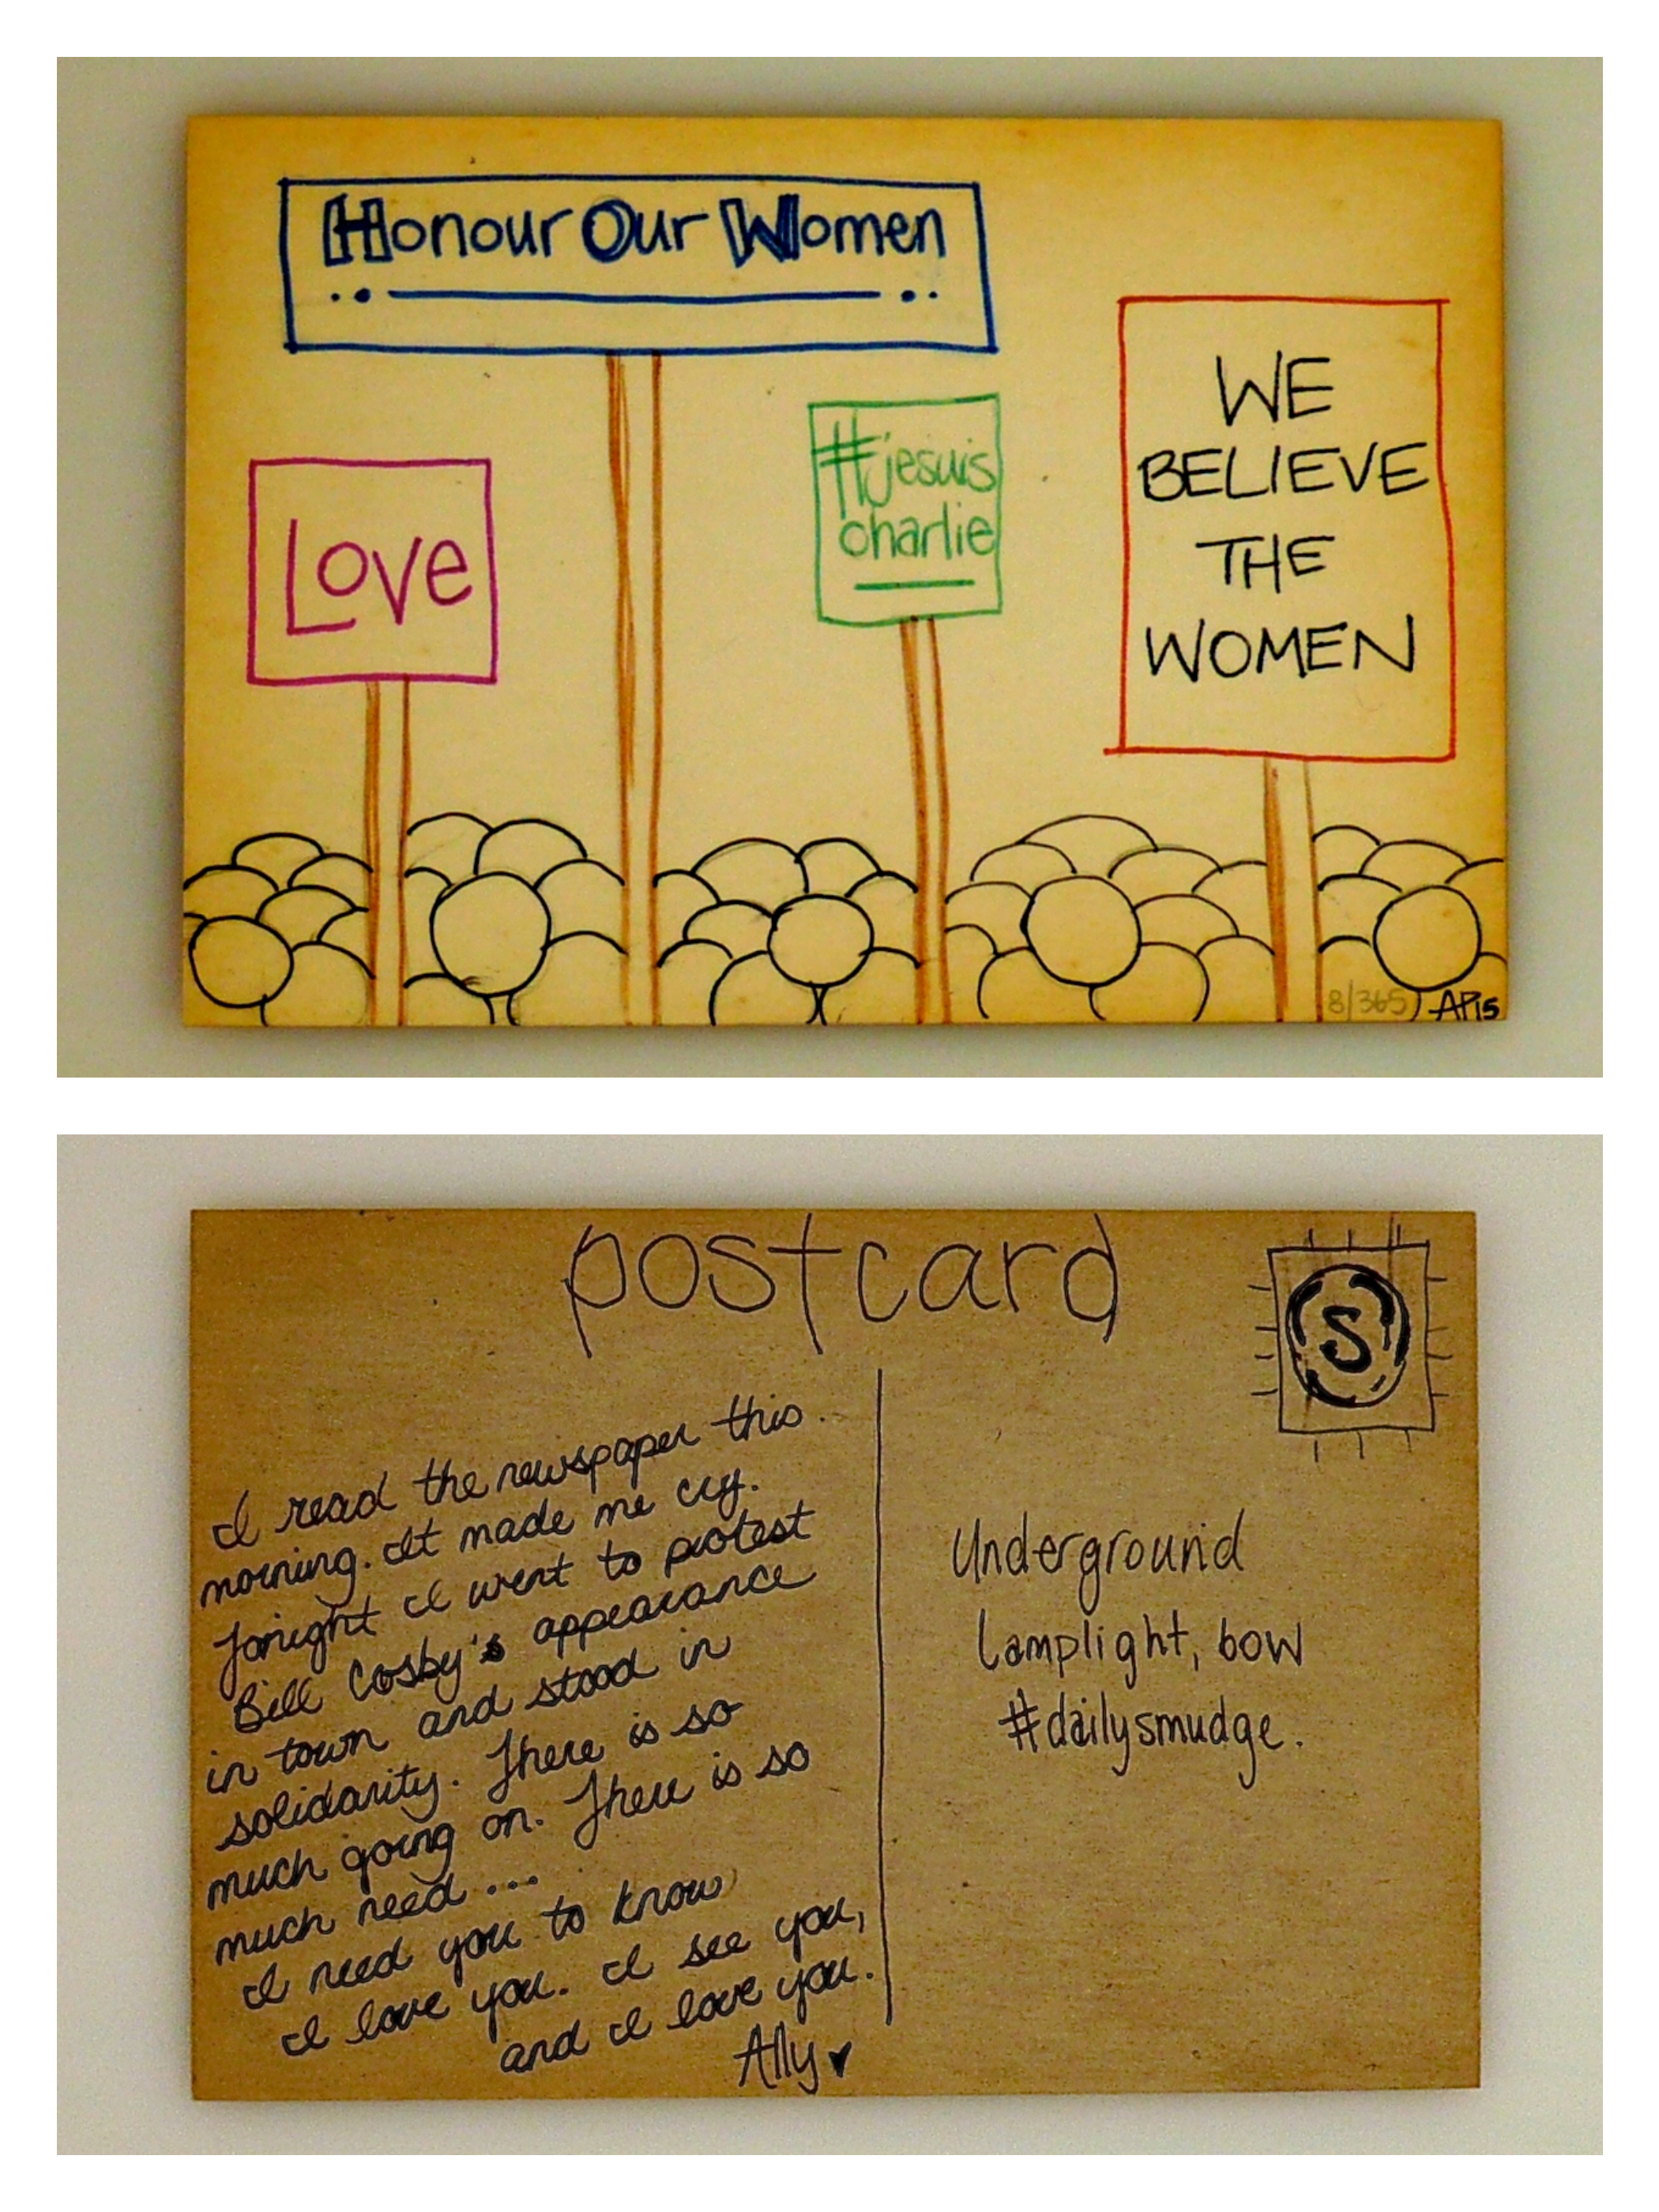 Honour Our Women
Love
#jesuis
charlie
WE
BELIEVE
THE
WOMEN
8/365
AP15
postcard
S
I read the newspaper this
morning. It made me cry.
Tonight I went to protest
Bill Cosby's appearance
in town and stood in
solidarity. There is so
much going on. There is so
much need...
I need you to know
I love you. I see you,
and I love you.
Ally
Underground
Lamplight, bow
#dailysmudge.